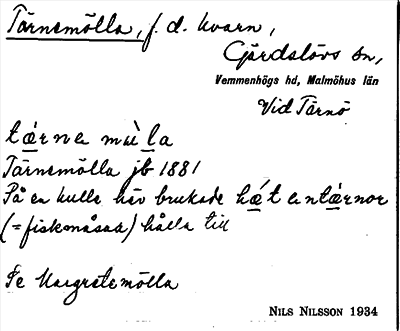 Tärnemölla, f. d. kvarn,
Gärdslövs sn,
Vemmenhögs hd, Malmöhus län
Vid Tärnö
tárne mùla
Tärnemölla jb 1881
På en kulle här brukade hǽt entǽrnor
(= fiskmåsar) hålla till
Se Margretemölla
NILS NILSSON 1934